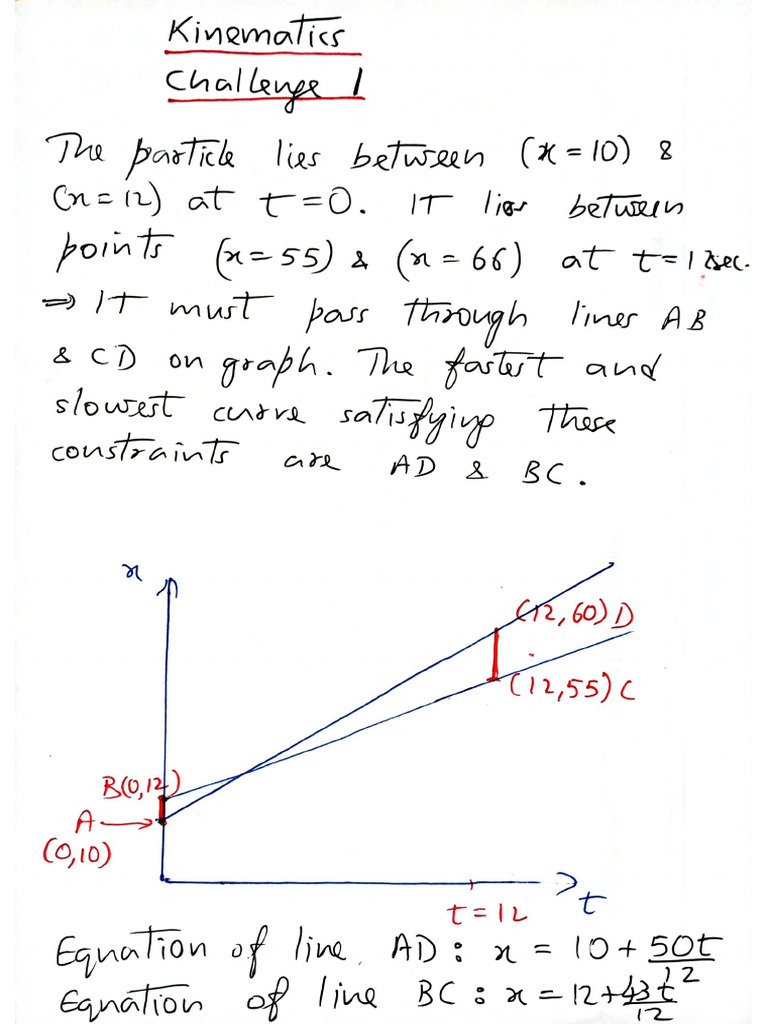 Kinematics
Challenge 1
The particle lies between (x=10) &
(x=12) at t=0. IT lies between
points (x=55) & (x=66) at t=12sec.
⇒ IT must pass through lines AB
& CD on graph. The fastest and
slowest curve satisfying these
constraints are AD & BC.
x
(12,60) D
(12,55) C
B(0,12)
A
(0,10)
t
t=12
Equation of line AD: x = 10 + 50t/12
Equation of line BC: x = 12 + 43t/12